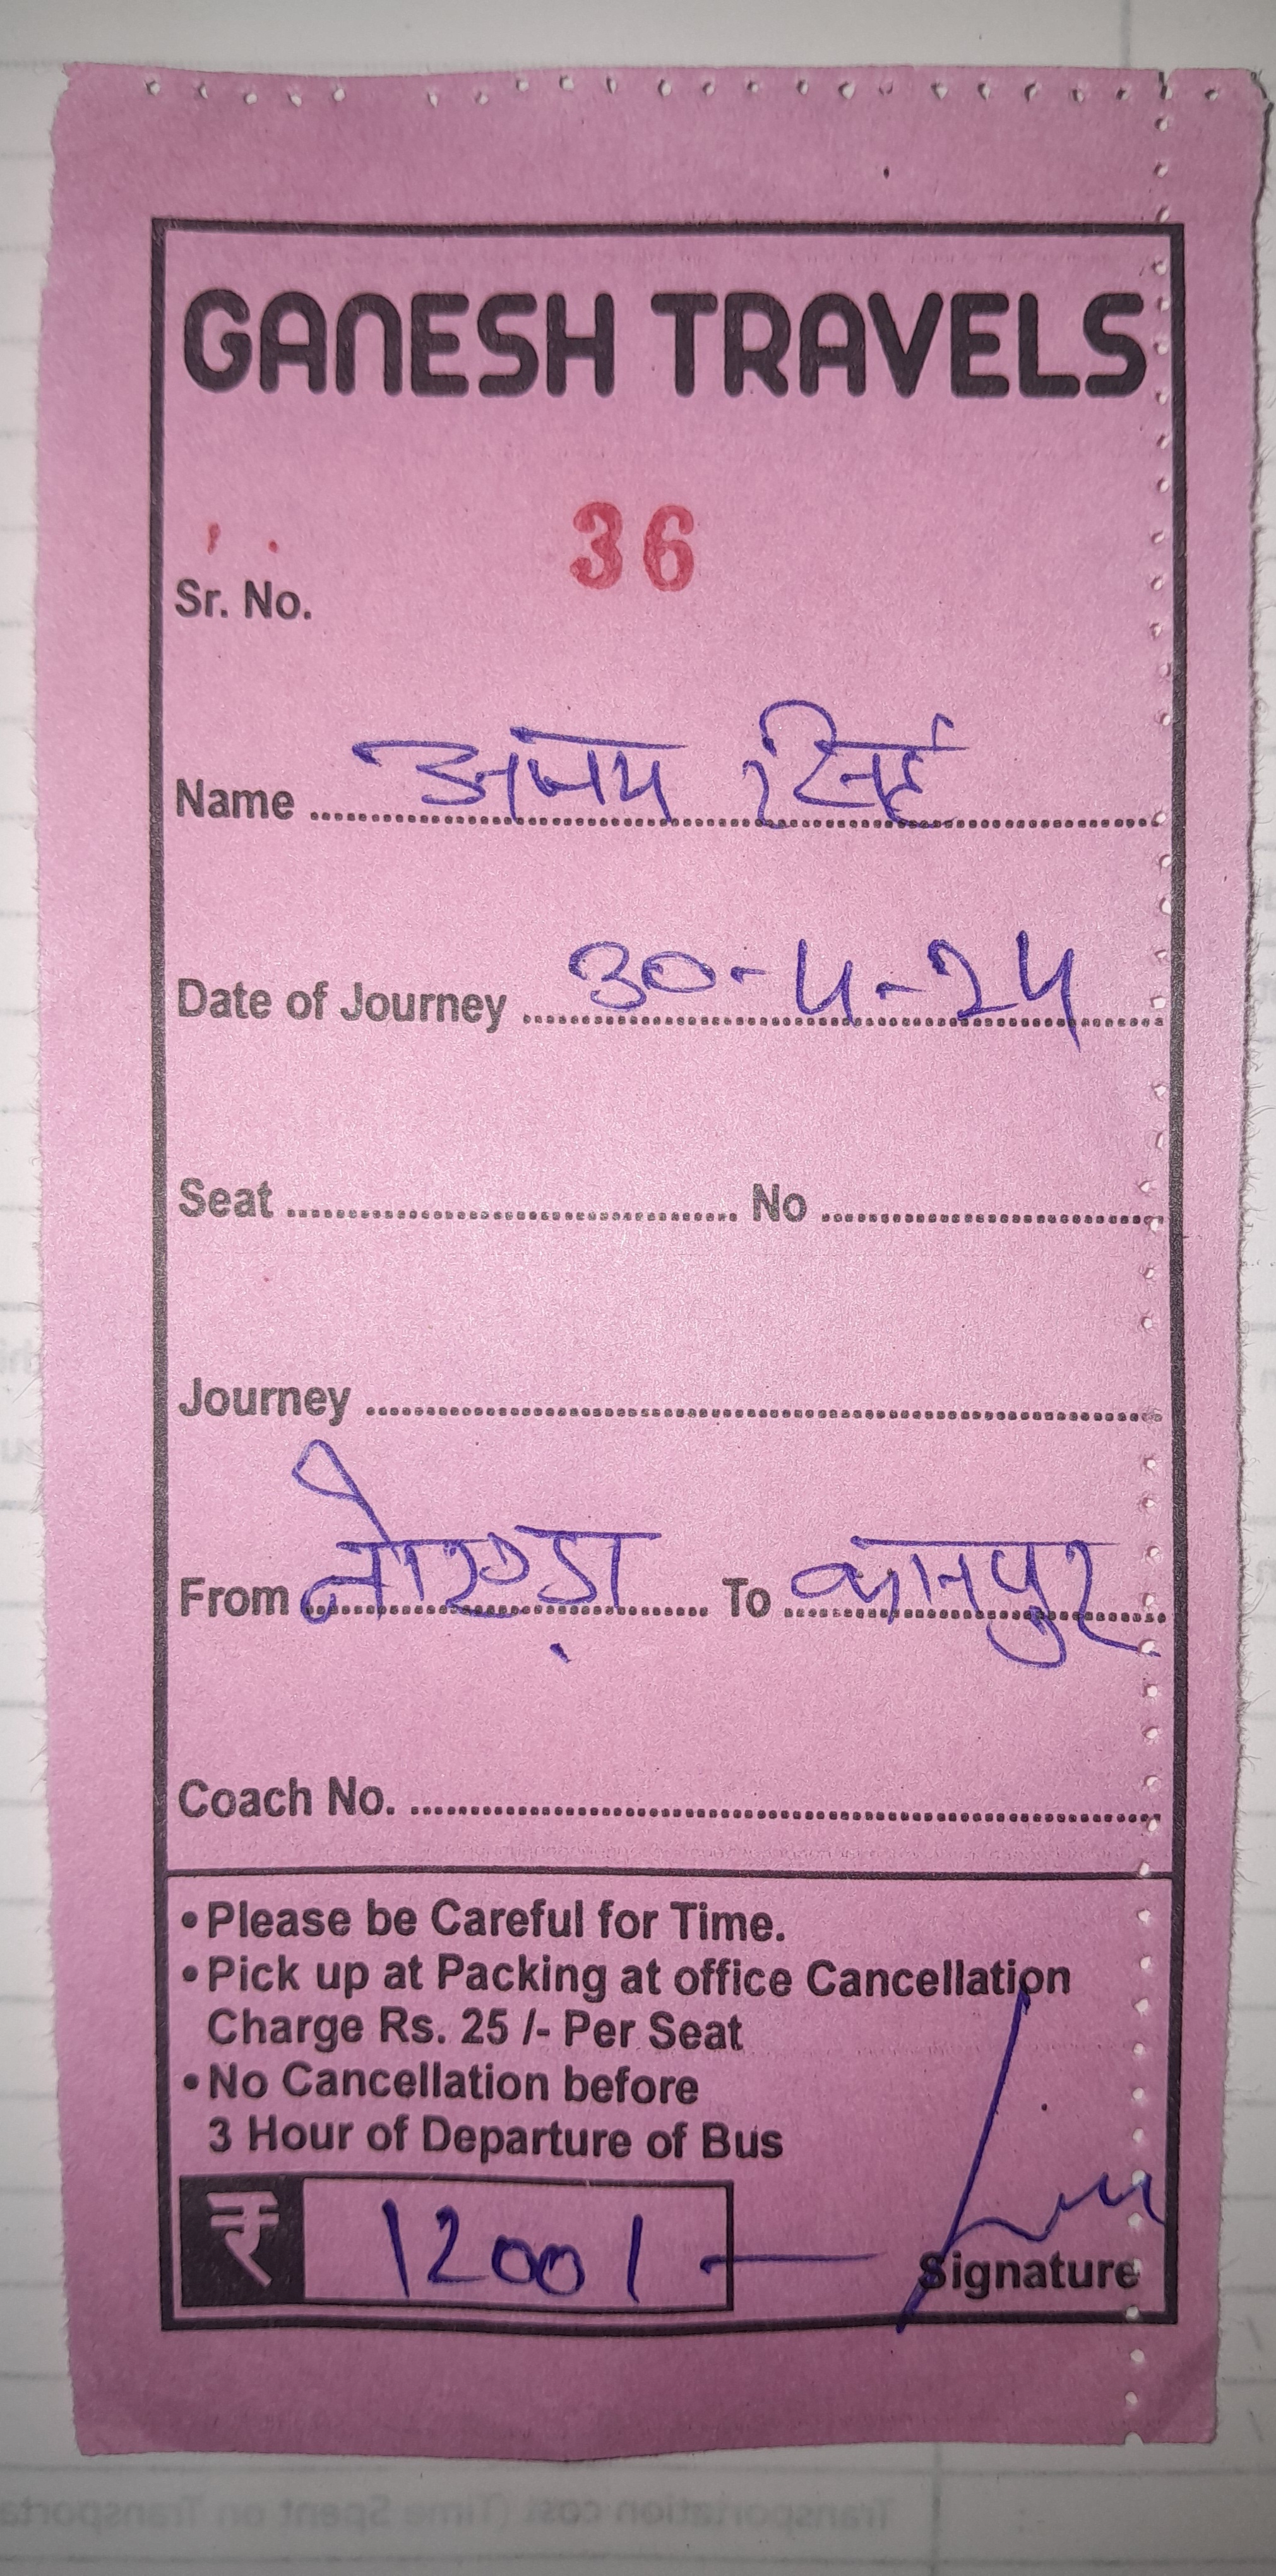 GANESH TRAVELS
36
Sr. No.
Name अजय सिंह
Date of Journey 30-4-24
Seat No
Journey
From नोएडा To कानपुर
Coach No.
• Please be Careful for Time.
• Pick up at Packing at office Cancellation
Charge Rs. 25 /- Per Seat
• No Cancellation before
3 Hour of Departure of Bus
₹ 1200/-
Signature